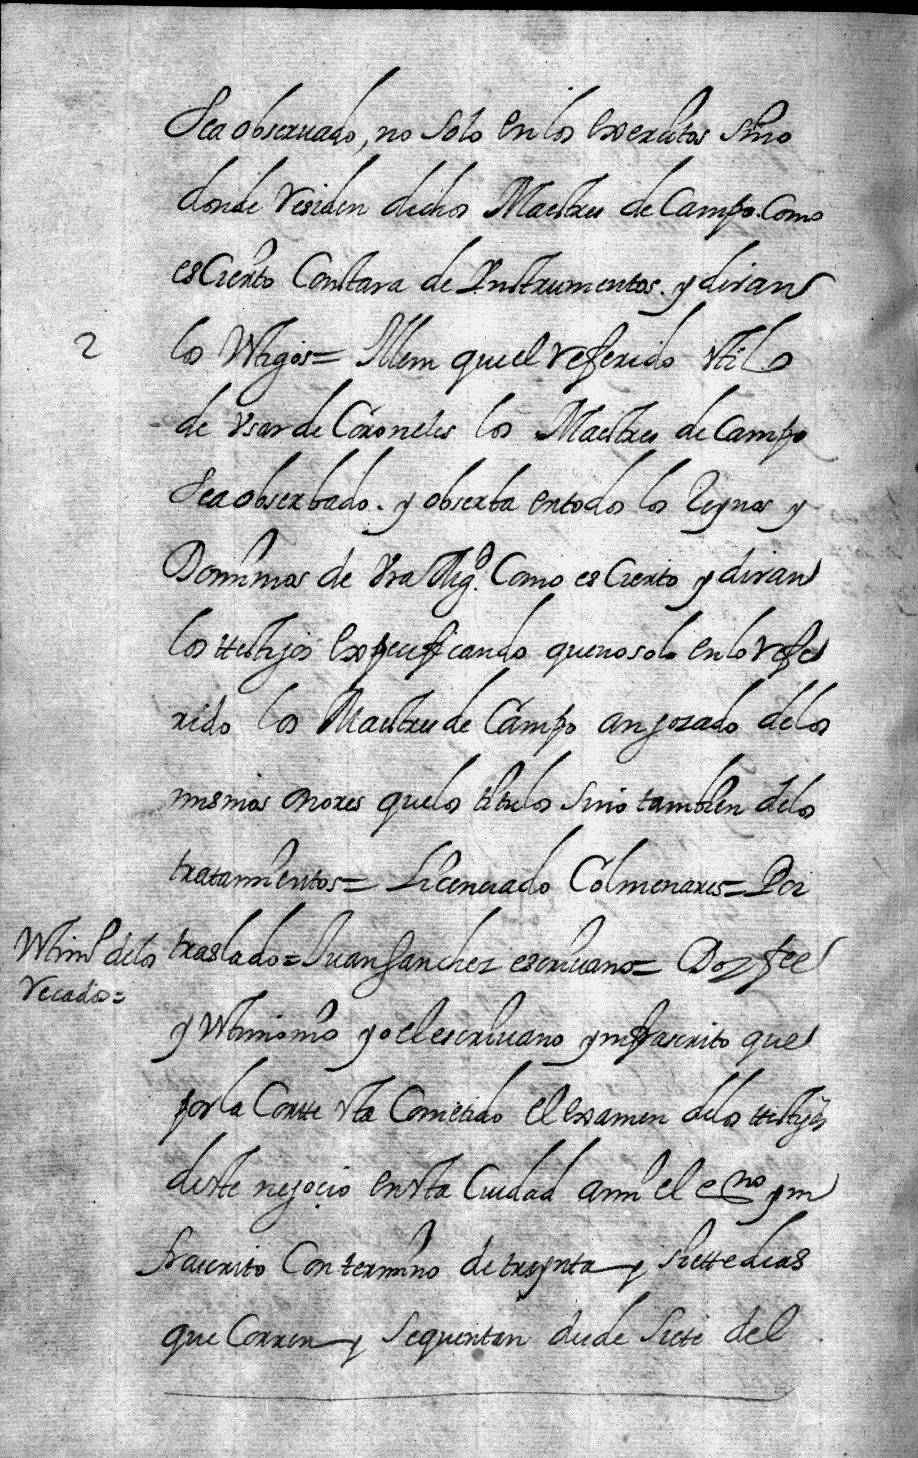 Sea obseruado, no solo en los exercitos sino
donde residen dichos Maestres de Campo. Como
es Cierto Constara de Ynstrumentos. y diran
2
los testigos= Yttem que el referido estilo
de Vsar de Coroneles los Maestres de Campo
Sea obserbado. y obserba en todos los Reynos y
Dominios de Vra Mgd. Como es Cierto y diran
los ttestigos expecificando que no solo en lo refe
rido los Maestres de Campo an gozado de los
mismos onores que los titulos sino tambien de los
tratamientos= Licenciado Colmenares= Por
traslado= Juan Sanchez escriuano= Doy fee
testimo de los
recados=
y testimonio yo el escriuano ynfrascrito que
por la Cortte esta Cometido el examen de los ttestigos
deste negocio en esta Ciudad a mi el esno yn
frascrito Con termino de treynta y siette dias
que Corren y se quentan desde siete del